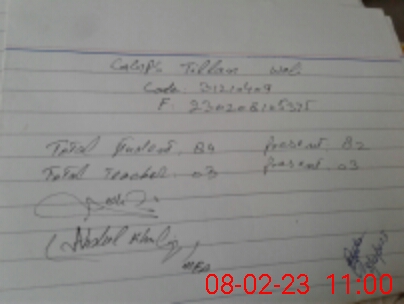 GGHPS Tillam Wali
Code. 31210409
F. 230208105375
Total Student. 84 present. 82
Total Teacher. 03 present. 03
(Abdul Khaliq)
MEA
08-02-23 11:00